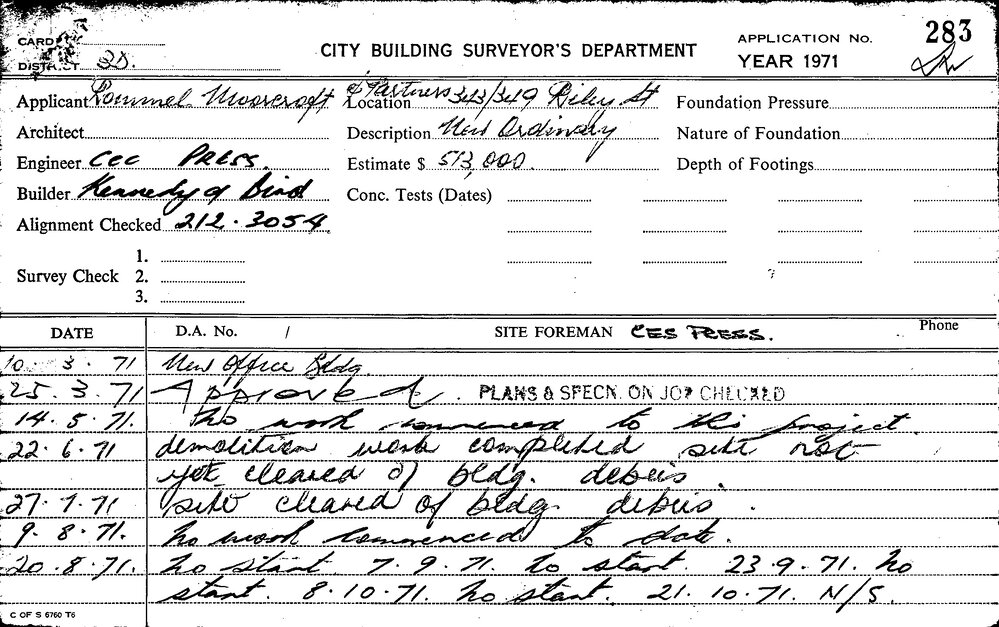 CARD
CITY BUILDING SURVEYOR'S DEPARTMENT
APPLICATION No. 283
DISTRICT
YEAR 1971
Applicant Rommel Moorcroft & Partners
Location 343/349 Riley St
Foundation Pressure
Architect
Description New Ordinary
Nature of Foundation
Engineer CEC PRESS.
Estimate $ 513,000.
Depth of Footings
Builder Kennedy & Bird
Conc. Tests (Dates)
Alignment Checked 212.3054
Survey Check
1.
2.
3.
DATE D.A. No. / SITE FOREMAN CES PRESS. Phone
10. 3. 71 New Office Bldg.
25. 3. 71 Approved. PLANS & SPECN. ON JOB CHECKED
14. 5. 71. No work commenced to this project.
22. 6. 71 demolition work completed site not
yet cleared of bldg. debris.
27. 7. 71 site cleared of bldg. debris.
9. 8. 71. No work commenced to date.
20. 8. 71. No start. 7.9.71. No start. 23.9.71. No
start. 8.10.71. No start. 21.10.71. N/S.
C OF S 6760 T6